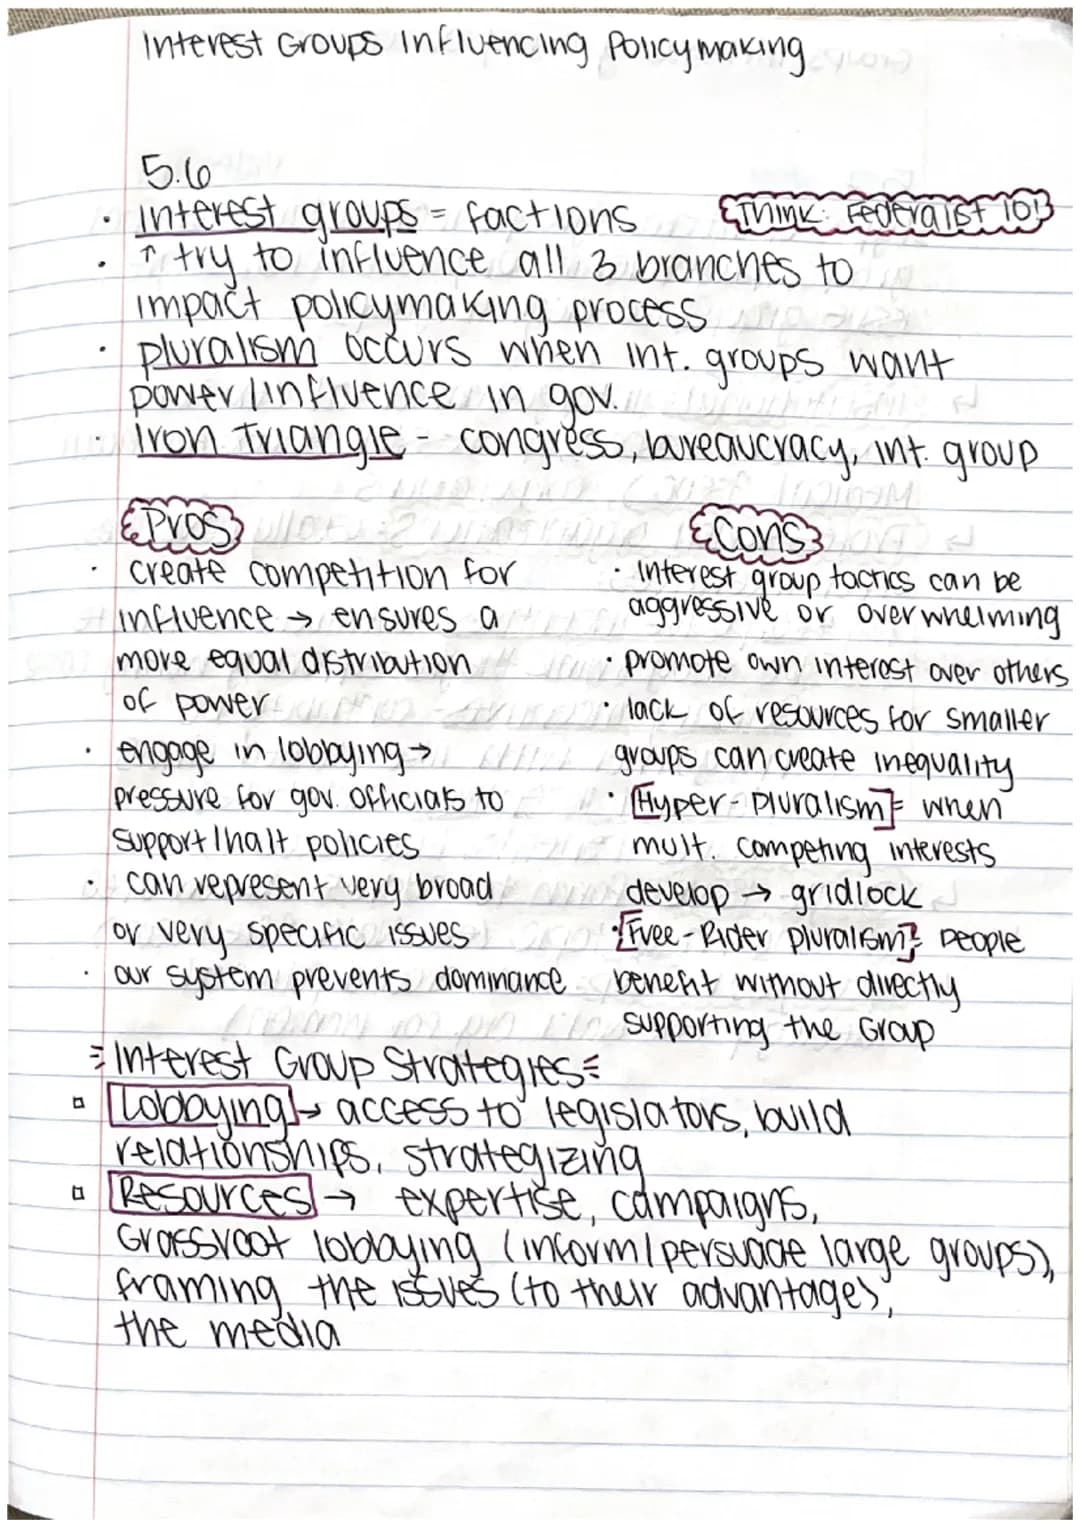 Interest Groups Influencing Policymaking
5.6
· interest groups = factions
Think: Federalist 10!
· ↑ try to influence all 3 branches to
impact policymaking process
· pluralism occurs when int. groups want
power/influence in gov.
· Iron Triangle - congress, bureaucracy, int. group
Pros
· create competition for
influence → ensures a
more equal distribution
of power
· engage in lobbying →
pressure for gov. officials to
support/halt policies
· can represent very broad
or very specific issues
· our system prevents dominance
Cons
· Interest group tactics can be
aggressive or overwhelming
· promote own interest over others
· lack of resources for smaller
groups can create inequality
· [Hyper-pluralism] = when
mult. competing interests
develop → gridlock
· [Free-Rider pluralism] = people
benefit without directly
supporting the Group
Interest Group Strategies
▫ Lobbying → access to legislators, build
relationships, strategizing
▫ Resources → expertise, campaigns,
Grassroot lobbying (inform/persuade large groups),
framing the issues (to their advantage),
the media